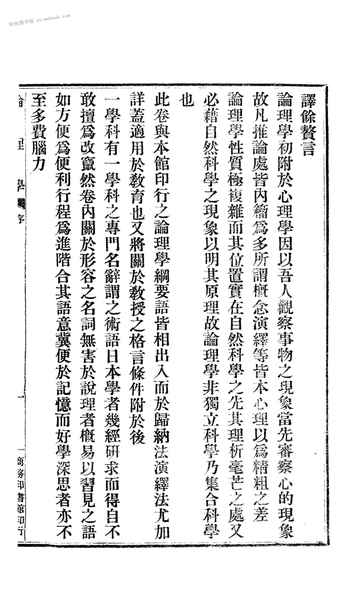 譯餘贅言
論理學初附於心理學因以吾人觀察事物之現象當先審察心的現象
故凡推論處皆內籀爲多所謂概念演繹等皆本心理以爲精粗之差
論理學性質極複雜而其位置實在自然科學之先其理析毫芒之處又
必藉自然科學之現象以明其原理故論理學非獨立科學乃集合科學
也
此卷與本館印行之論理學綱要語皆相出入而於歸納法演繹法尤加
詳蓋適用於敎育也又將關於敎授之格言條件附於後
一學科有一學科之專門名辭謂之術語日本學者幾經研求而得自不
敢擅爲改竄然卷內關於形容之名詞無害於說理者槪易以習見之語
如方便爲便利行程爲進階合其語意冀便於記憶而好學深思者亦不
至多費腦力
理學 序
一
商務印書館印行